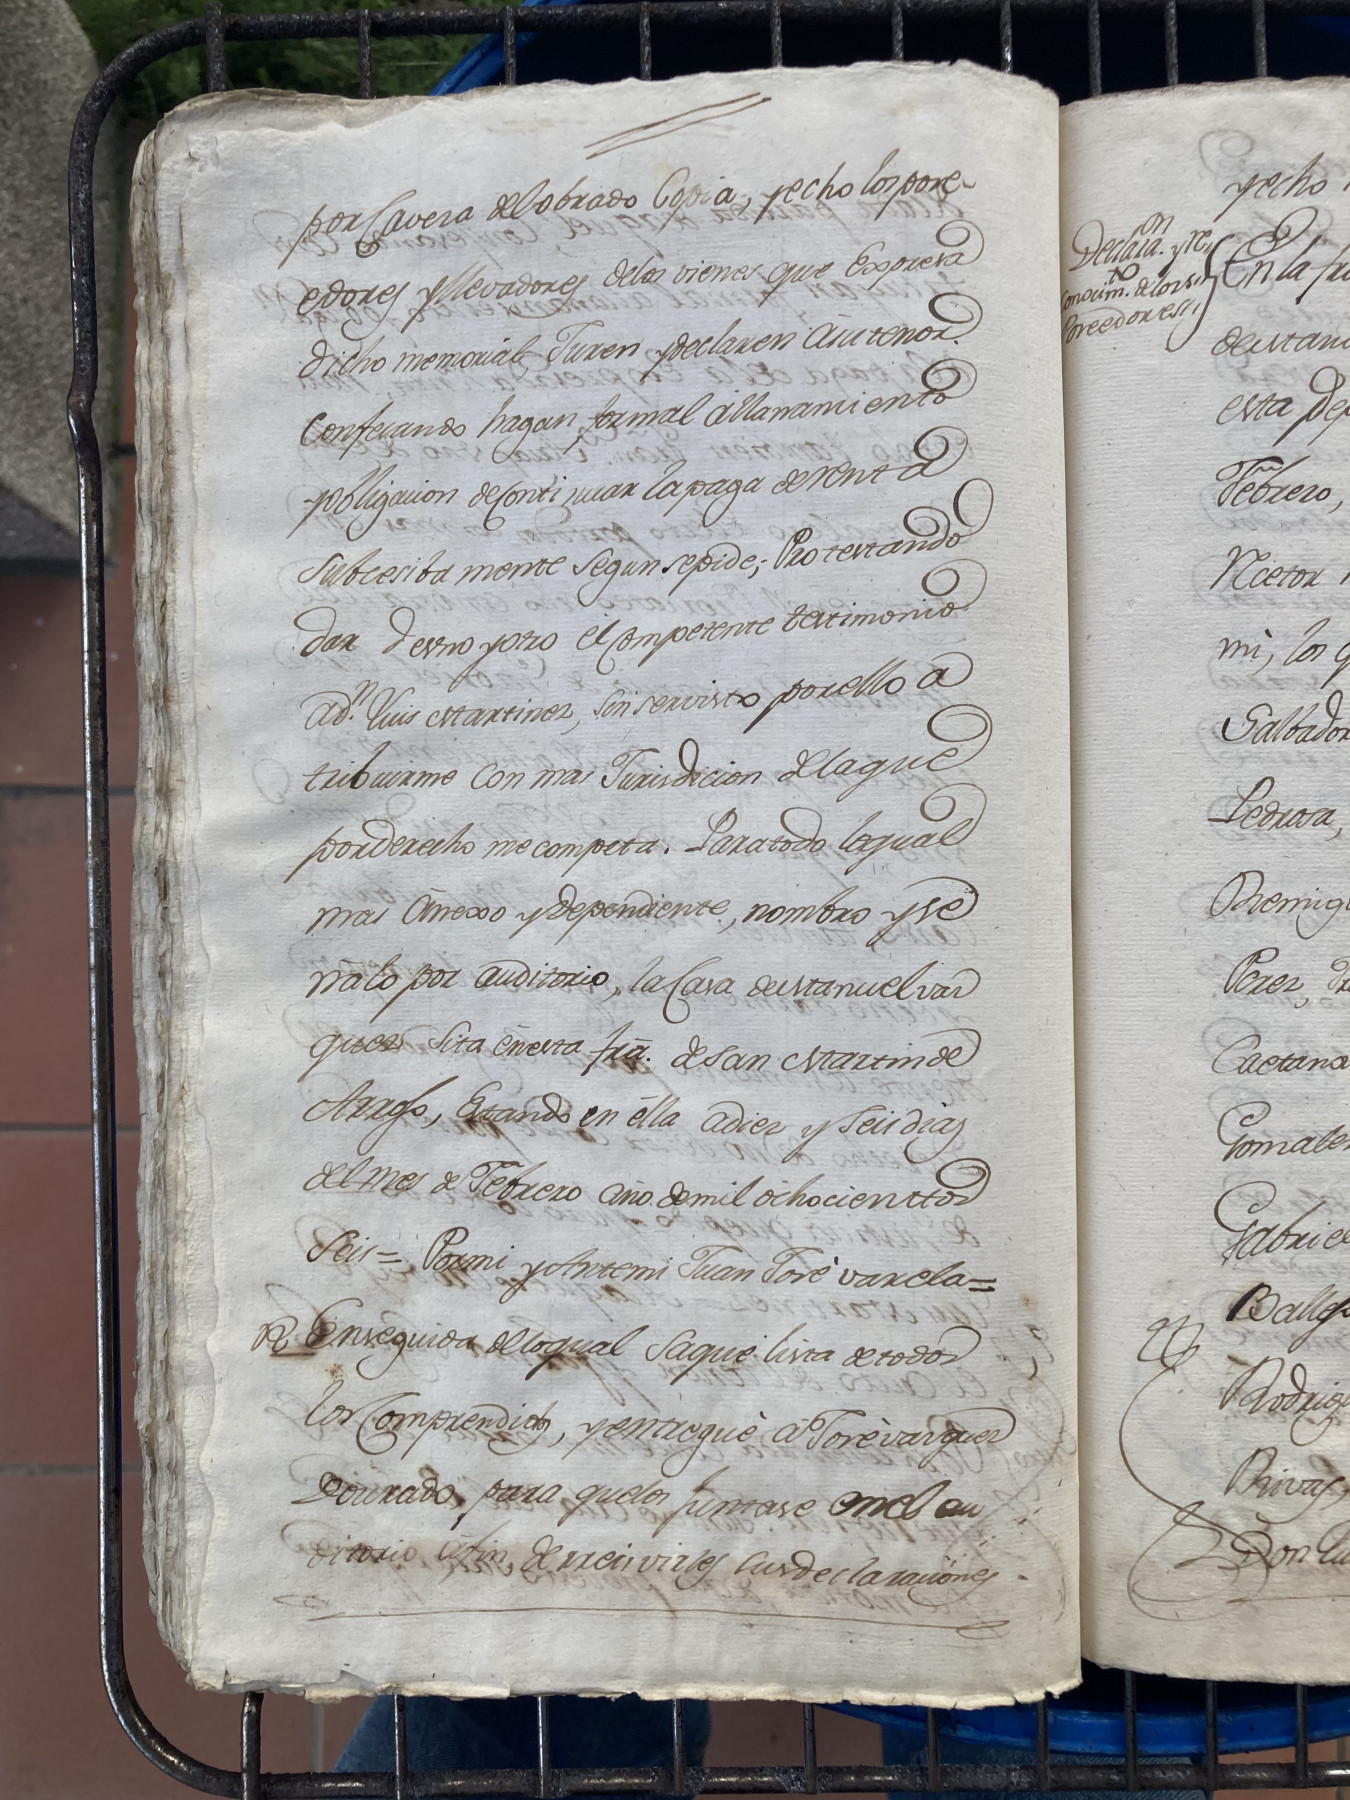 por Cavera delobrado Copia, yecho los pose-
edores yllevadores delos vienes que Expresa
dicho memorial Juren ydeclaren asutenor.
Confesando hagan, formal allanamiento
yobligacion deContinuar lapaga derenta
Subcesibamente Segun sepide; Protestando
dar deuno yotro elCompetente testimonio
adn. Luis Martinez, Sin servisto porello a
tribuirme Con mas Jurisdicion delaque
porderecho mecompeta. Paratodo loqual
mas anexo ydependiente, nombro yse
nalo por auditorio, la Casa deManuel vaz
quez Sita enesta fra. desan Martin de
Estando en ella adiez y Seis dias
del mes de Febrero año demil ochocienttos
Seis= Pormi yAntemi Juan Jose varela=
R Enseguida deloqual Saque lista detodos
los Comprendidos, yentregue a Jose vazquez
Dourado, para quelos Juntase enel au
ditorio afin de rrecivirles Susdeclaraciones
yecho
on
Declara. y re
no
conocim. delos
Poseedores
En la fra
demand
esta
Febrero,
Rector
mi, los q
Salbador
Pedrosa,
Remigi
Perez,
Caetano
Gonzalez
Gabriel
Rodrig
Rivas
Don Lu